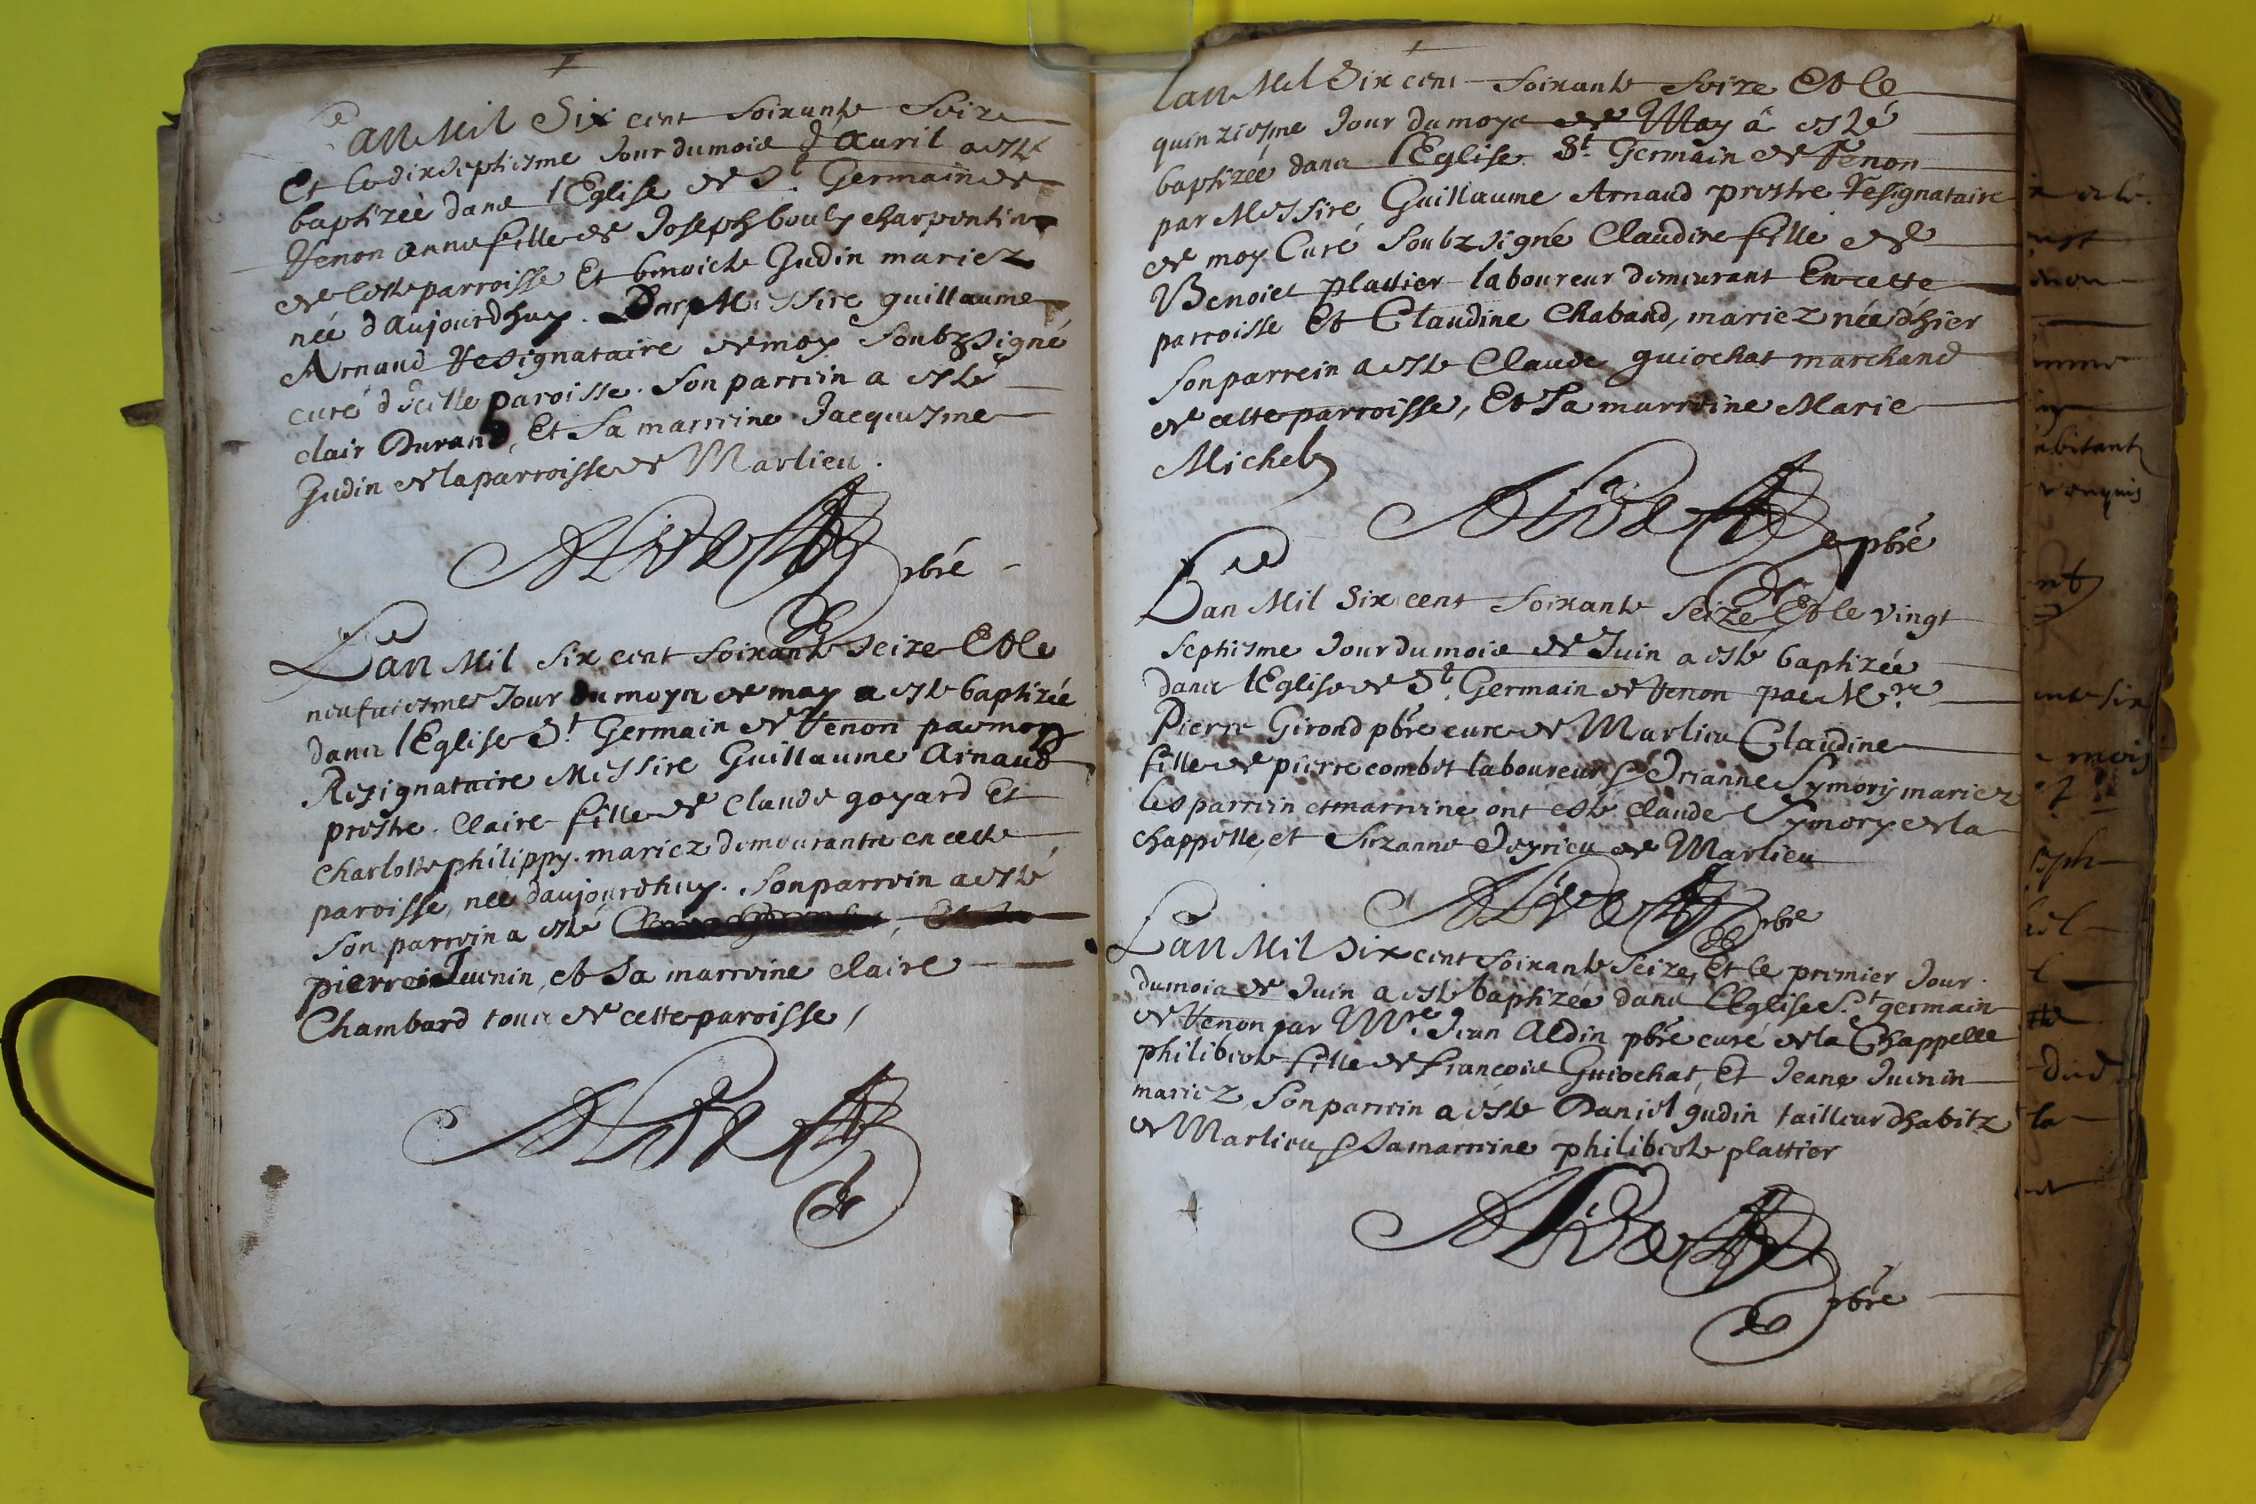 Lan Mil Six cent Soixante Seize
Et le dixseptiesme Jour du mois d'Auril a esté
baptizeé dans l'Eglise de St Germain de
Renon anne fille de Joseph bouly charpentier
de Cette parroisse Et benoicte Gudin mariez
née daujourdhuy. Par Messire guillaume
Arnaud Resignataire de moy Soubzsigné
curé dicelle paroisse. Son parrein a esté
clair Durand, Et Sa marreine Jacquesme
Gudin de la parroisse de Marlieu.
pbré
Lan Mil six cent soixante seize Et le
neufuiesmes Jour du moys de may a este baptizée
dans l'Eglise St Germain de Renon par moy
Resignataire Messire Guillaume Arnaud
prestre. Claire fille de Claude goyard Et
Charlotte philippy. mariez demeurants en cette
paroisse, née daujourdhuy. Son parrein a esté
Son parrein a esté
pierre Juenin, et Sa marreine claire
Chambard tous de cette paroisse /
Lan Mil Six cent Soixante Seize Et le
quinziesme Jour du moys de May a esté
baptizée dans l'Eglise St Germain de Renon
par Messire Guillaume Arnaud prestre Resignataire
de moy Curé Soubzsigné Claudine fille de
Benoict plattier laboureur demeurant En cette
parroisse Et Claudine Chaband, mariez née d'hier
Son parrein a este Claude guiochat marchand
de cette parroisse, Et Sa marreine Marie
Michel
pbré
Lan Mil Six cent Soixante Seize Et le vingt
septiesme Jour du mois de Juin a este baptizée
dans l'Eglise de St Germain de Renon par Mre
Pierre Girond pbré cure de Marlieu Claudine
fille de pierre combet laboureur & Drianne Symory mariez
les parrein et marreine ont este Claude Symory de la
chappelle, et Suzanne Deyrieu de Marlieu
pbre
Lan Mil Six cent Soixante Seize, Et le premier Jour
du mois de Juin a este baptizée dans l'Eglise St germain
de Renon par Mre Jean Aldin pbré curé de la Chappelle
philiberte fille de François Guiochat, Et Jeane Juenin
mariez Son parrein a este Daniel gudin tailleur dhabitz
de Marlieu & Sa marreine philiberte plattier
pbré